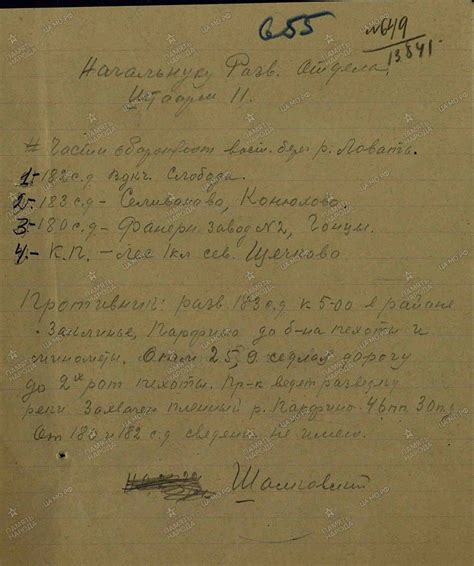 655
№649
13541.
Начальнику Разв. отдела
Штаарм 11.
# Части обороняют вост. берег р. Ловать.
1.- 182 с.д. Слобода.
2.- 183 с.д. - Селиваново, Конюхово.
3.- 180 с.д. - Фанерн. завод №2, Гонцы.
4.- К.П. - лес 1кл сев. Щечково
Противник: разв. 183 с.д. к 5-00 в районе
Заклинье, Парфино до б-на пехоты и
миномёты. 25,9 седлая дорогу
до 2х рот пехоты. Пр-к ведет разведку
реки. Захвачен пленный р. Парфино 4бпп 30пд
От 180 и 182 с.д. сведений не имею.